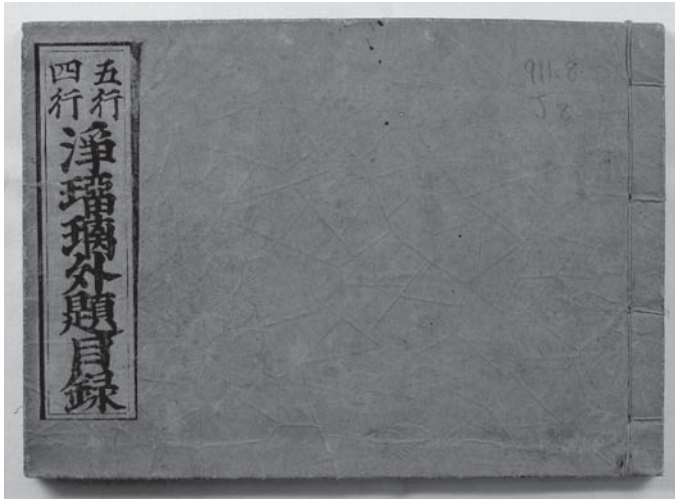 五行
四行
浄瑠璃外題目録
911.8
J 8